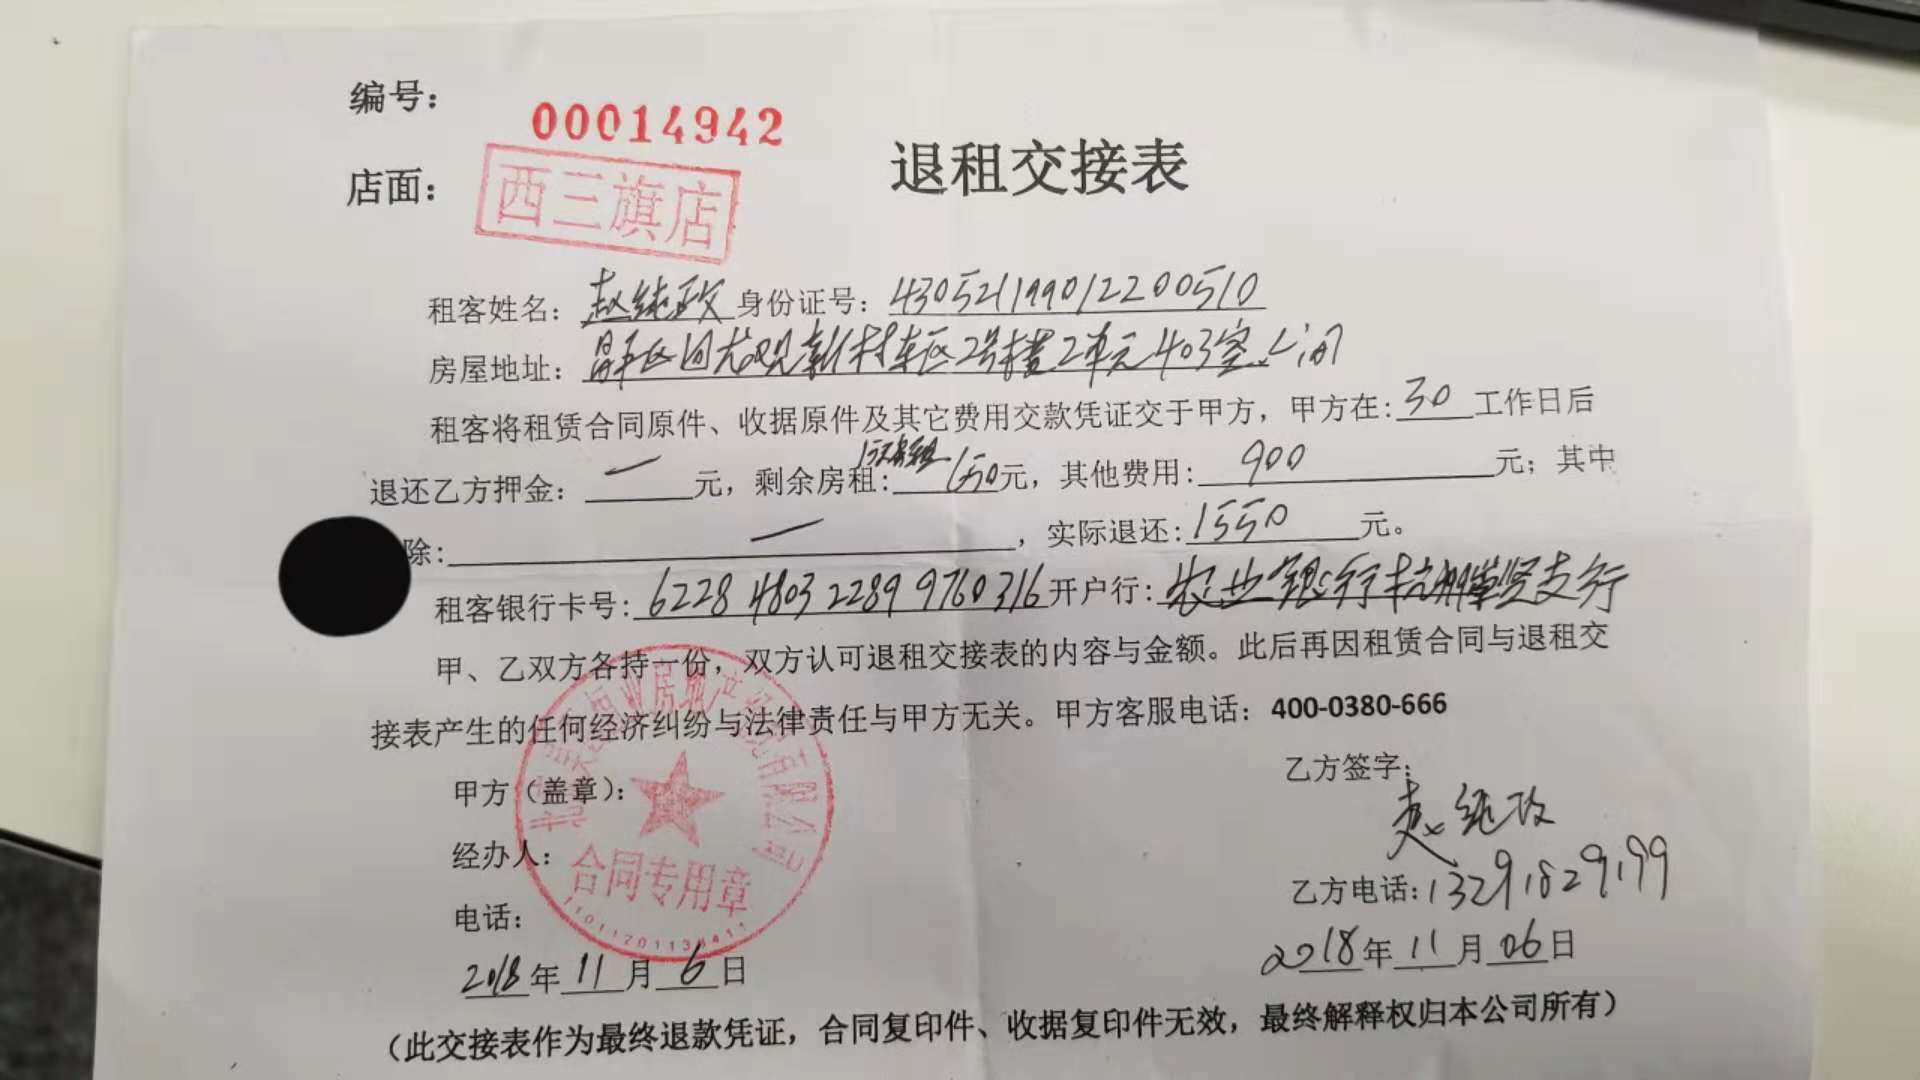 编号：
00014942
店面：
西三旗店
退租交接表
租客姓名：赵纯政 身份证号：430521199012200510
房屋地址：昌平区回龙观新村东区2号楼2单元403室 上间
租客将租赁合同原件、收据原件及其它费用交款凭证交于甲方，甲方在：30工作日后
退还乙方押金：一元，剩余房租：元，其他费用：900元；其中
除：一，实际退还：1550元。
租客银行卡号：6228 4803 2289 9760316 开户行：农业银行杭州支行
甲、乙双方各持一份，双方认可退租交接表的内容与金额。此后再因租赁合同与退租交
接表产生的任何经济纠纷与法律责任与甲方无关。甲方客服电话：400-0380-666
甲方（盖章）：
乙方签字：
赵纯政
经办人：
合同专用章
乙方电话：13291829199
电话：
2018年11月6日
2018年11月06日
（此交接表作为最终退款凭证，合同复印件、收据复印件无效，最终解释权归本公司所有）